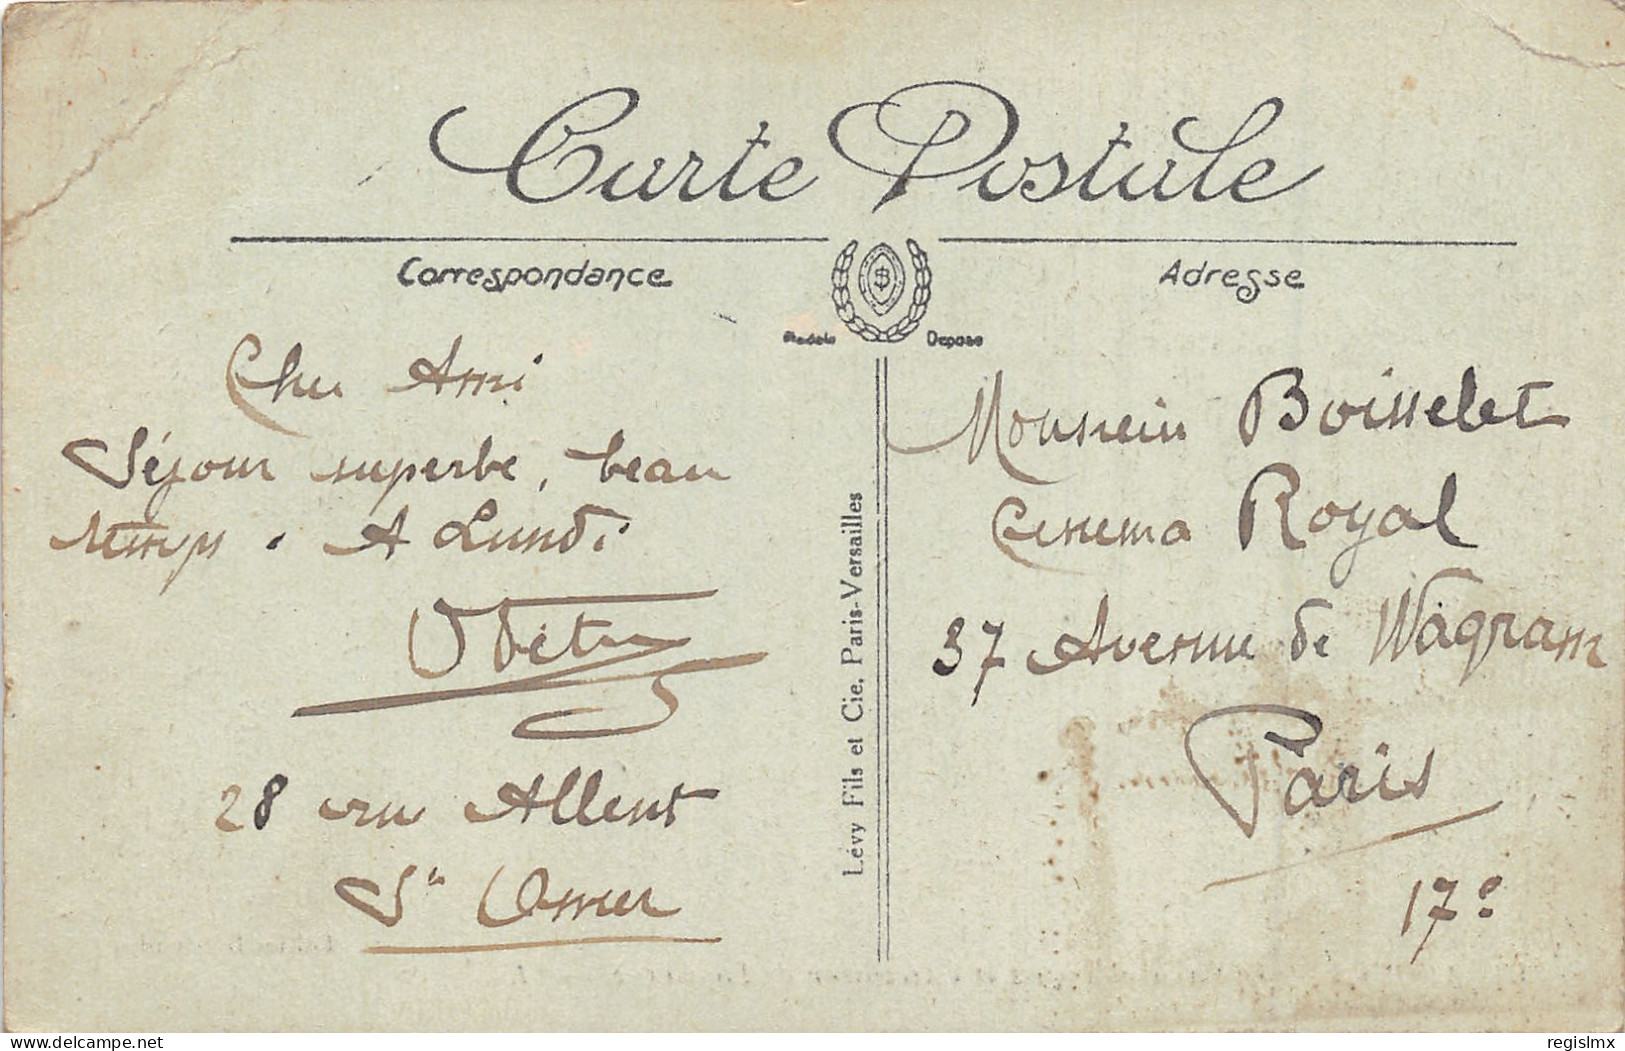 Carte Postale
Correspondance
Adresse
Modèle Déposé
Cher Ami
Séjour superbe, beau
temps. A Lundi
28 rue Allent
St Omer
Lévy Fils et Cie, Paris-Versailles
Monsieur Boisselet
Cinema Royal
37 Avenue de Wagram
Paris
17e
delcampe.net
regislmx